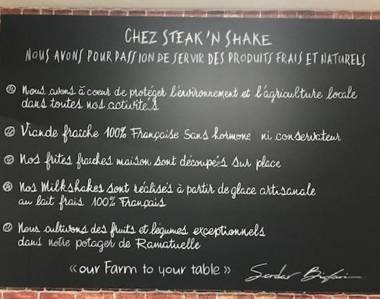 CHEZ STEAK'N SHAKE
NOUS AVONS POUR PASSION DE SERVIR DES PRODUITS FRAIS ET NATURELS
Nous avons à coeur de protéger l'environnement et l'agriculture locale
dans toutes nos activités
Viande fraîche 100% Française sans hormone ni conservateur
Nos frites fraiches maison sont découpés sur place
Nos Milkshakes sont réalisés à partir de glace artisanale
au lait frais 100% Français
Nous cultivons des fruits et légumes exceptionnels
dans notre potager de Ramatuelle
«our Farm to your table» Sardar Biglari